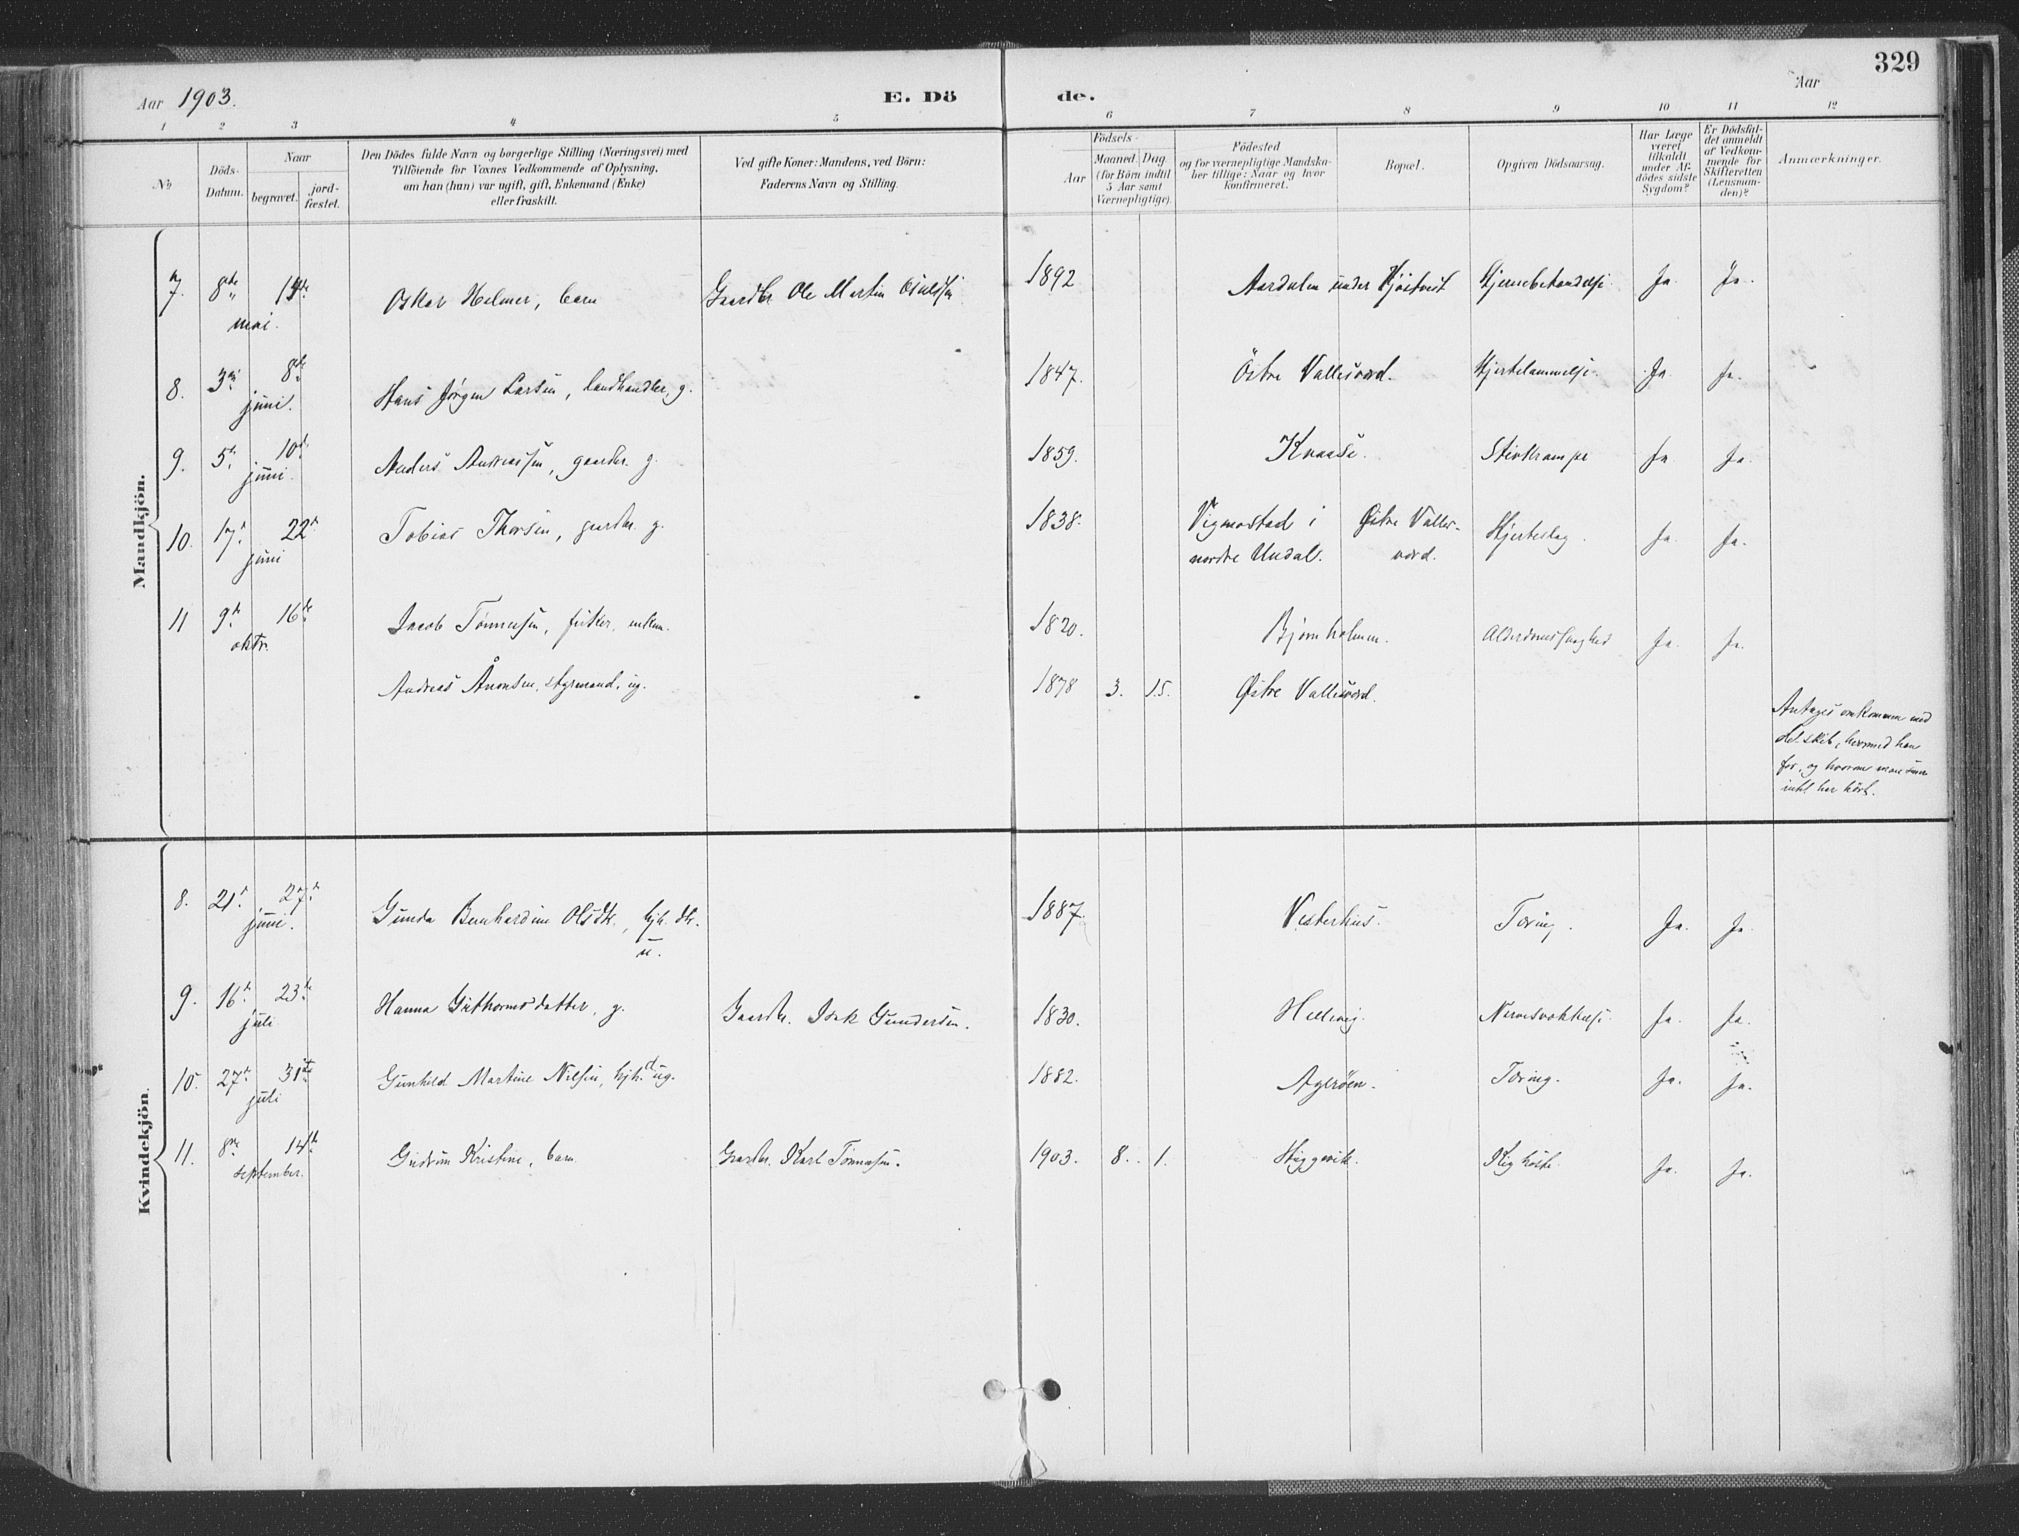 329
Aar 1903. E. Dö de. Aar
1 2 3 4 5 6 7 8 9 10 11 12
No
Döds-Datum.
Naar
begravet.
jord-fæstet.
Den Dödes fulde Navn og borgerlige Stilling (Næringsvei) med
Tilföiende for Voxnes Vedkommende af Oplysning,
om han (hun) var ugift, gift, Enkemand (Enke)
eller fraskilt.
Ved gifte Koner: Mandens, ved Börn:
Faderens Navn og Stilling.
Födsels-
Aar
Maaned. Dag
(for Börn indtil
5 Aar samt
Værnepligtige).
Födested
og for værnepligtige Mandska-
ber tillige: Naar og hvor
konfirmeret.
Bopæl.
Opgiven Dödsaarsag.
Har Læge
været
tilkaldt
under Af-
dödes sidste
Sygdom?
Er Dödsfal-
det anmeldt
af Vedkom-
mende for
Skifteretten
(Lensman-
den)?
Anmærkninger.
Mandkjön.
7. 8de mai. Oskar Helmer, barn Gaardbr Ole Martin 1892 Aardalen under Ja. Ja.
8. 3die 8de juni. Hans Jørgen Larsen, landhandler, g. 1847. Östre Vallesværd. Hjertelammelse. Ja Ja.
9. 5te 10de juni. Anders Andreassen, gaardbr. g. 1859. Knaase. Stivkrampe Ja Ja.
10. 17de 22de juni Tobias Thorsen, gaardbr. g. 1838. Vigmostad i nordre Undal. Østre Valles-værd. Hjerteslag. Ja. Ja.
11 9de 16de oktr. Jacob Tönnessen, fisker, enkem. 1820. Bjørnholmen. Alderdomssvaghed Ja. Ja.
Andreas Ånonsen, styrmand, ug. 1878 3. 15. Østre Vallesværd.
Antages omkommen med
det skib, hvormed han
for, og hvorom man
intet har hört.
Kvindekjön.
8. 21de 27de juni. Gunda Bernhardine Olsdtr., hjv. dtr. u. 1887. Vesterhus. Tæring. Ja. Ja.
9. 16de 23de juli Hanna Guthormsdatter, g. Gaardbr. Isak Gundersen. 1830. Hillevig. Nervesvækkelse. Ja. Ja.
10. 27de 31te juli Gunhild Martine Nilsen, ug. 1882. Agerøen. Tæring. Ja. Ja.
11. 8de 14de september. Gudrun Kristine, barn Gaardbr. Karl Tönnessen. 1903. 8. 1. Skiggevik. Kighoste. Ja. Ja.